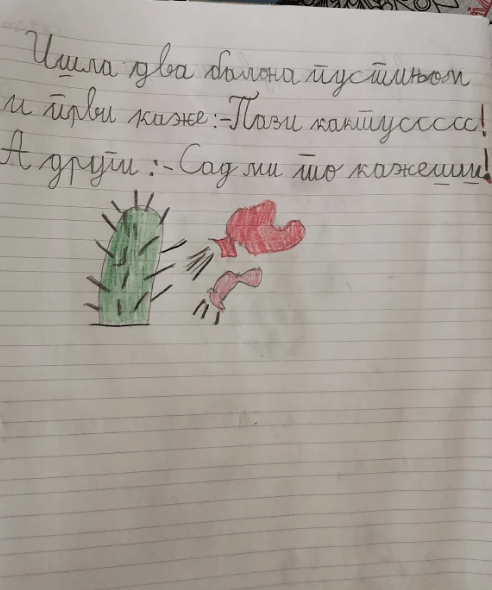 Ишла два балона пустињом
и први каже:-Пази кактусссс!
А други :- Сад ми то кажешшш!